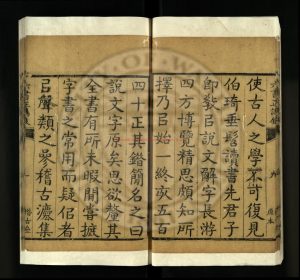 使古人之學不可復見
伯琦垂髫讀書先君子
即敎㠯說文解字長游
四方博覽精思頗知所
擇乃㠯始一終亥五百
四十正其錯簡名之曰
說文字原矣思欲釐其
全書有所未暇閒嘗摭
字書之常用而疑佀者
㠯聲類之參稽古灋集